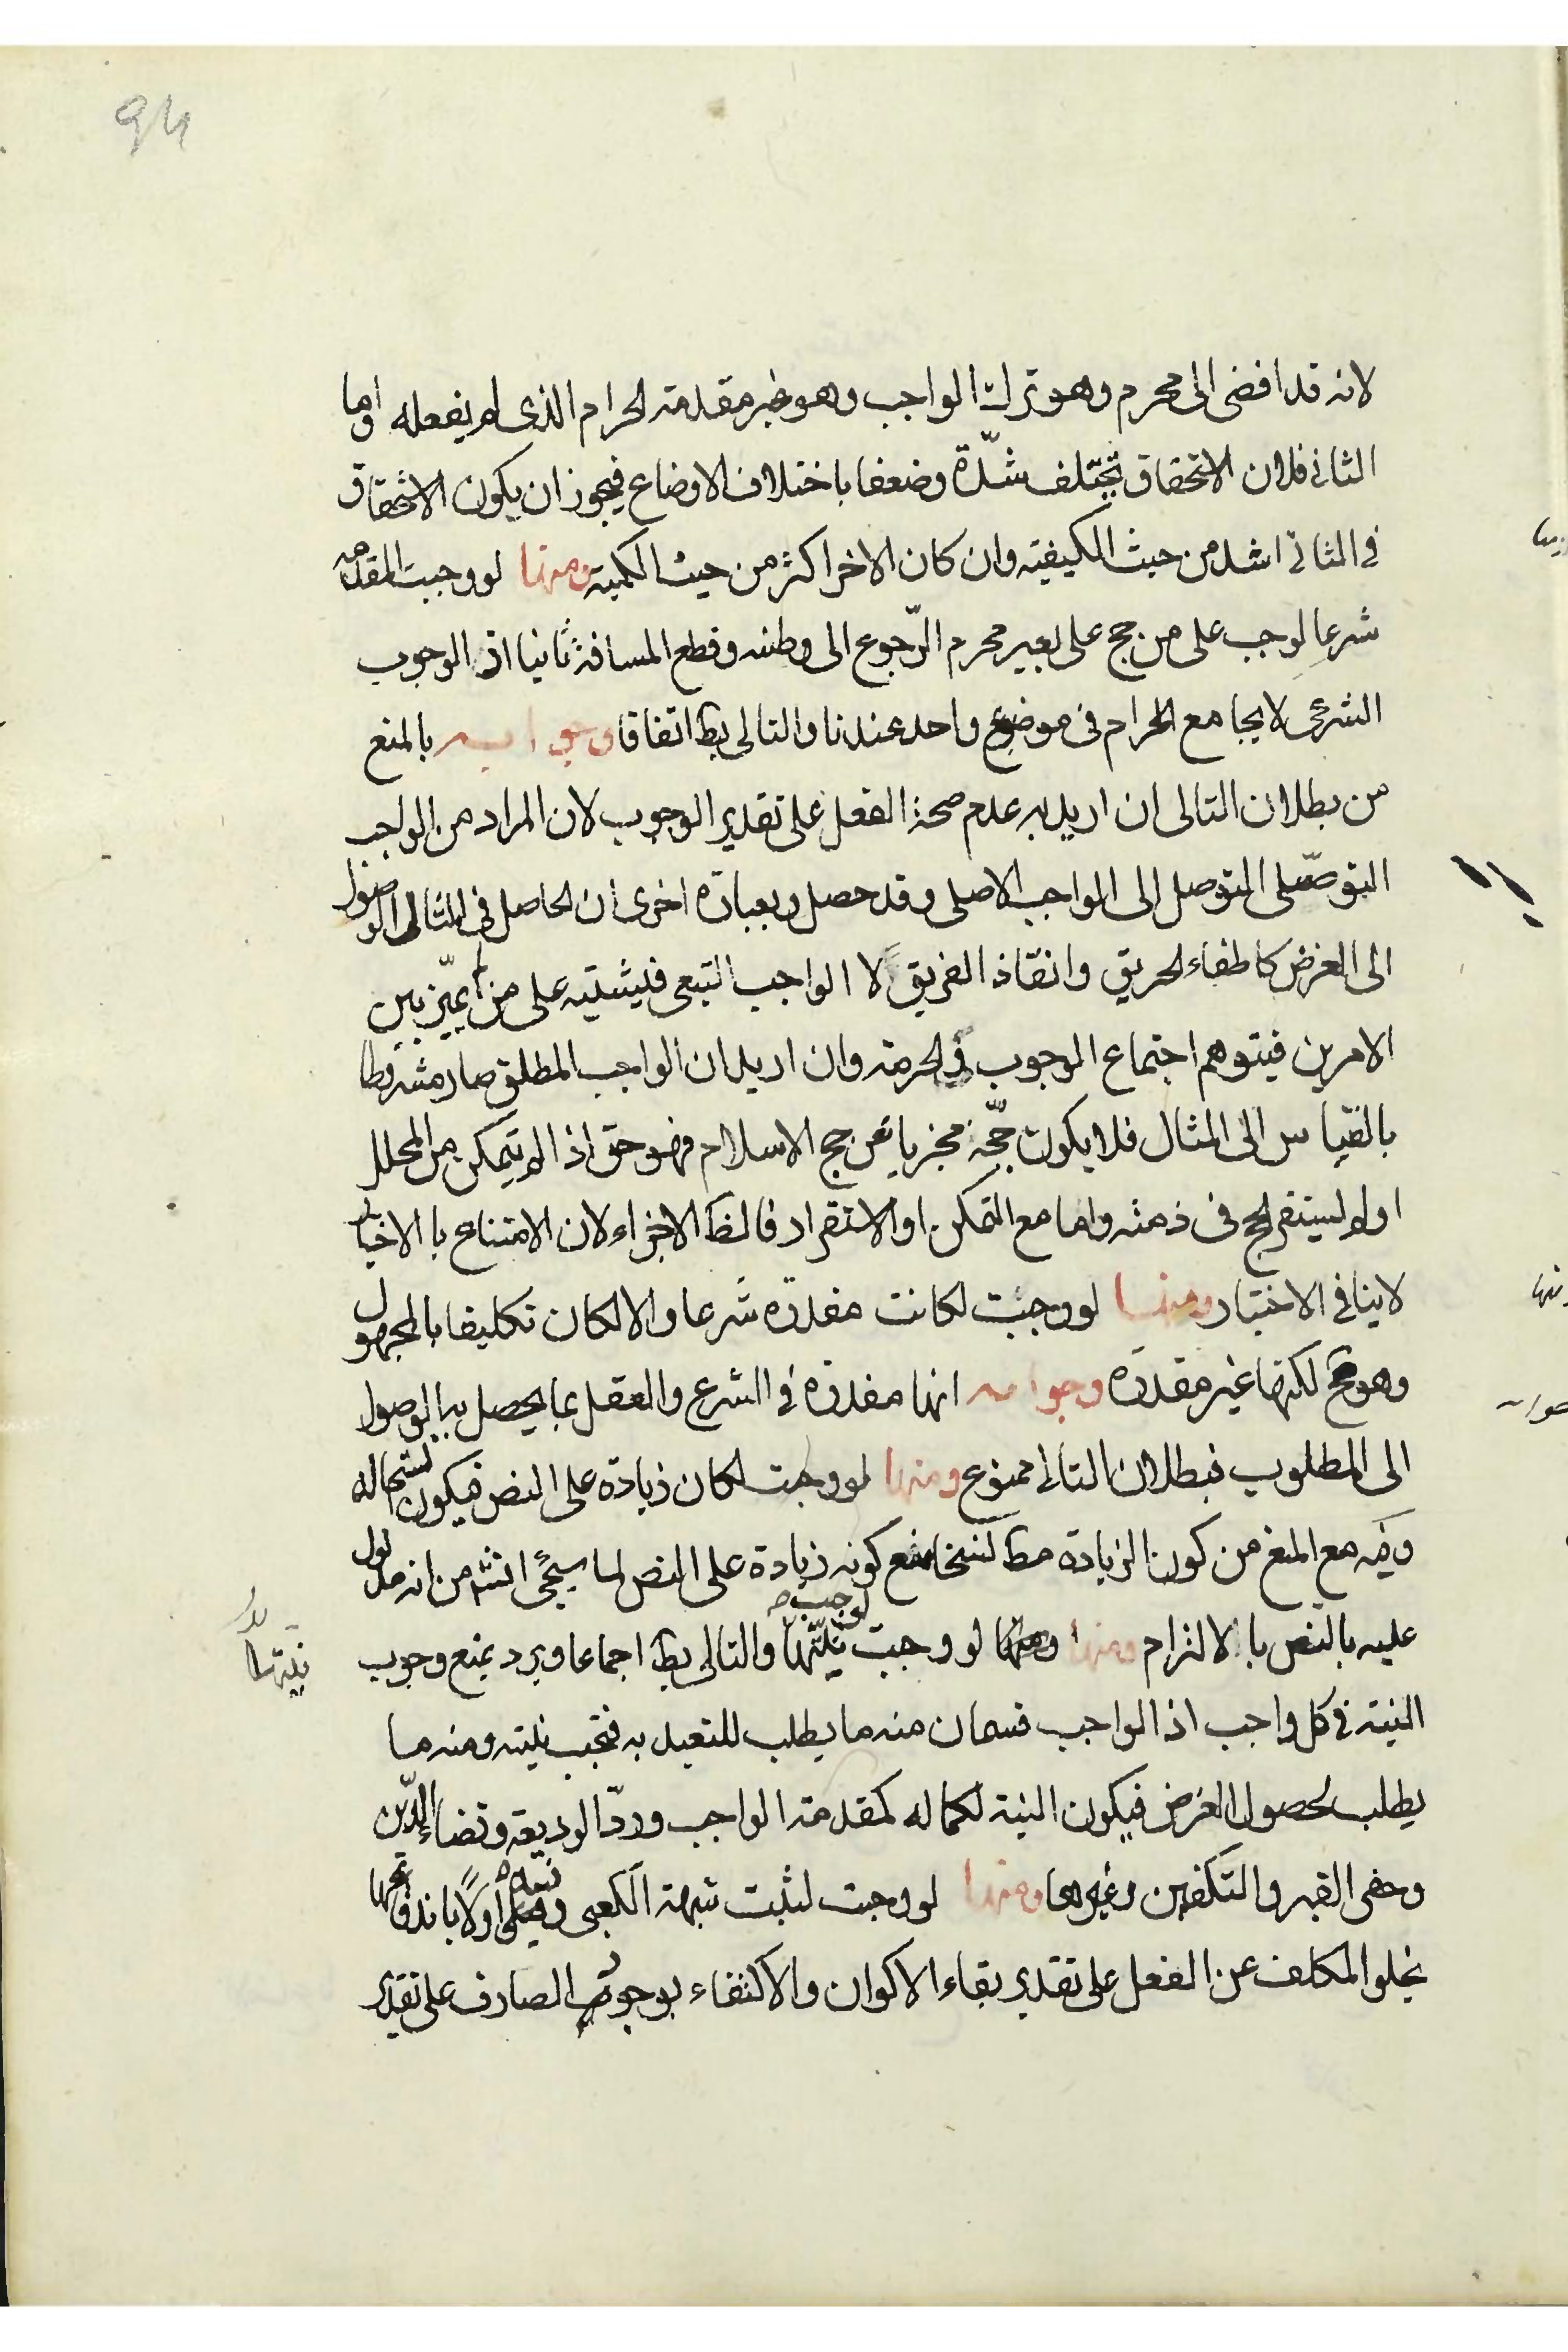 94
لانه قد افضى الى محرم وهو ترك الواجب وهو خير مقدمة الحرام الذى لم يفعله واما
الثانى فلان الاستحقاق تختلف شدّة وضعفا باختلاف الاوضاع فيجوز ان يكون الاستحقاق
فى الثانى اشد من حيث الكيفية وان كان الاخر اكثر من حيث الكمية ومنها لو وجبت المقدمه
شرعا لوجب على من حج على بعير محرم الرّجوع الى وطنه وقطع المسافة ثانيا اذ الوجوب
الشرعى لا يجامع الحرام فى موضع واحد عندنا والتالى بط اتفاقا وجوابه بالمنع
من بطلان التالى ان اريد به عدم صحة الفعل على تقدير الوجوب لان المراد من الواجب
التوصّلى التوصل الى الواجب الاصلى وقد حصل وبعبارة اخرى ان الحاصل فى المثال الوصول
الى الغرض كاطفاء الحريق وانقاذ الغريق لا الواجب التبعى فليشتبه على من لم يميّز بين
الامرين فيتوهم اجتماع الوجوب فى الحرمة وان اريد ان الواجب المطلق صار مشروطا
بالقياس الى المثال فلا يكون حجّه مجزيا عن حج الاسلام فهو حق اذا لم يتمكن من المحلل
اولم يستقر الحج فى ذمته واما مع التمكن او الاستقرار فالظ الاجزاء لان الامتناع بالاختيار
لا ينافى الاختيار ومنها لو وجبت لكانت مقدرة شرعا والا لكان تكليفا بالمجهول
وهو قبح لكنها غير مقدرة وجوابه انها مقدرة فى الشرع والعقل بما يحصل به الوصول
الى المطلوب فبطلان التالى ممنوع ومنها لو وجبت لكان زيادة على النص فيكون نسخا له
وفيه مع المنع من كون الزيادة مط نسخا منع كونه زيادة على النص لما سيجئ انشه من انه مدلول
عليه بالنص بالالتزام ومنها لو وجبت لوجبت نيّتها والتالى بط اجماعا ويرد بمنع وجوب
نيتها
النية فى كل واجب اذ الواجب قسمان منه ما يطلب للتعبد به فتجب نيته ومنه ما
يطلب لحصول الغرض فيكون النية لكماله كمقدمة الواجب وردّ الوديعة وقضاء الدّين
وحفر القبر والتكفين وغيرها ومنها لو وجبت لثبت شبهة الكعبى وفيه اولا باندفاعها
يخلو المكلف عن الفعل على تقدير بقاء الاكوان والاكتفاء بوجود الصارف على تقدير